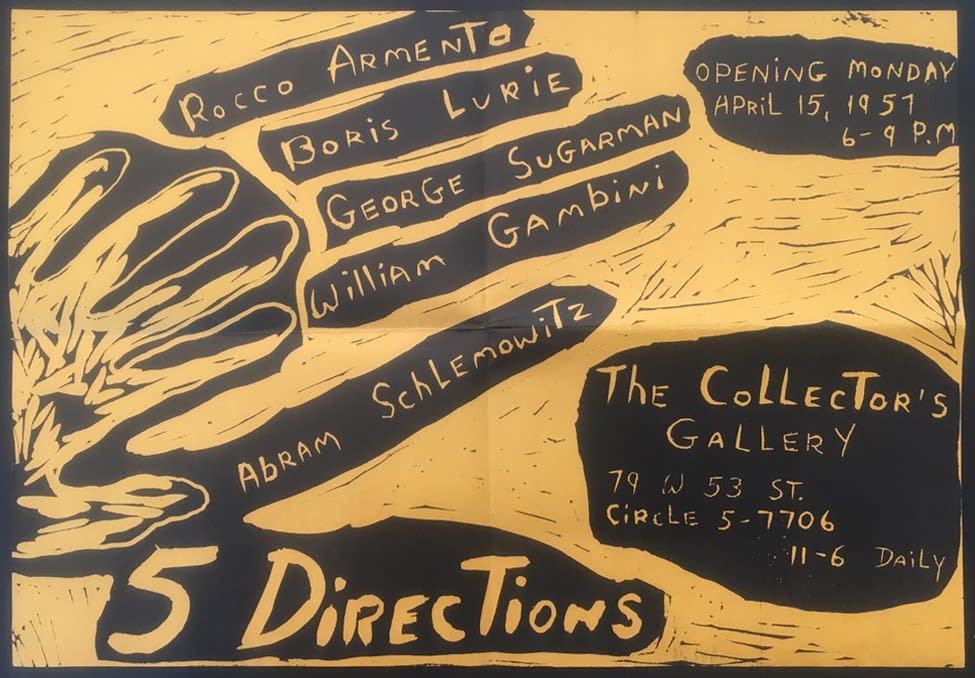 Rocco ARMENTO
BORIS LURIE
GEORGE SUGARMAN
William GAMBiNi
ABRAM SCHLEMOWITZ
OPENING MONDAY
APRIL 15, 1957
6-9 P.M
THE COLLECTOR'S
GALLERY
79 W 53 ST.
CIRCLE 5-7706
11-6 DAILY
5 DIRECTIONS